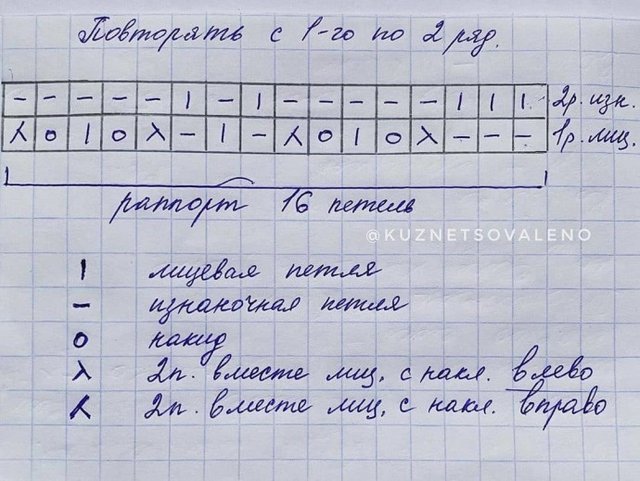 Повторять с 1-го по 2 ряд.
– – – – – I – I – – – – – I I I 2р. изн.
⅄ O I O λ – I – ⅄ O I O λ – – – 1р. лиц.
раппорт 16 петель
@KUZNETSOVALENO
I лицевая петля
– изнаночная петля
O накид
λ 2п. вместе лиц. с накл. влево
⅄ 2п. вместе лиц. с накл. вправо